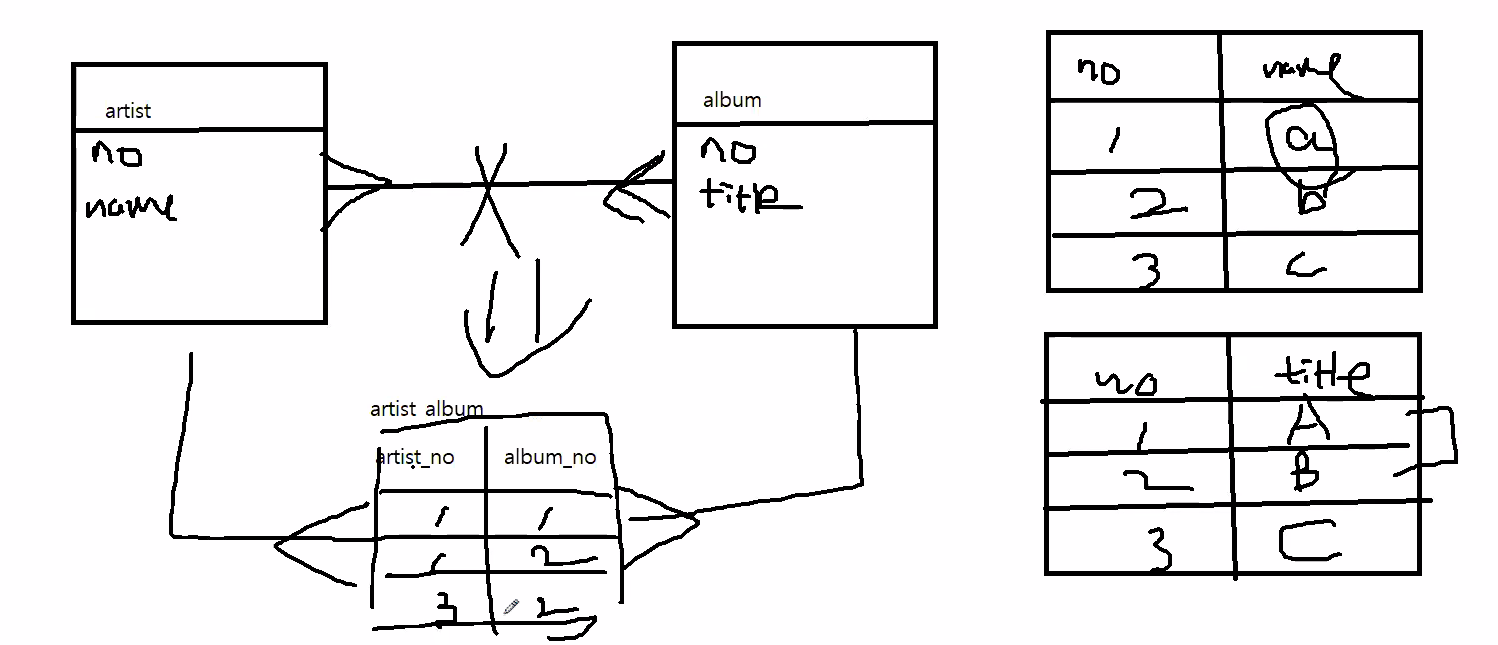 artist
no
name
album
no
title
artist album
artist_no album_no
1 1
1 2
3 2
no name
1 a
2 b
3 c
no title
1 A
2 B
3 C